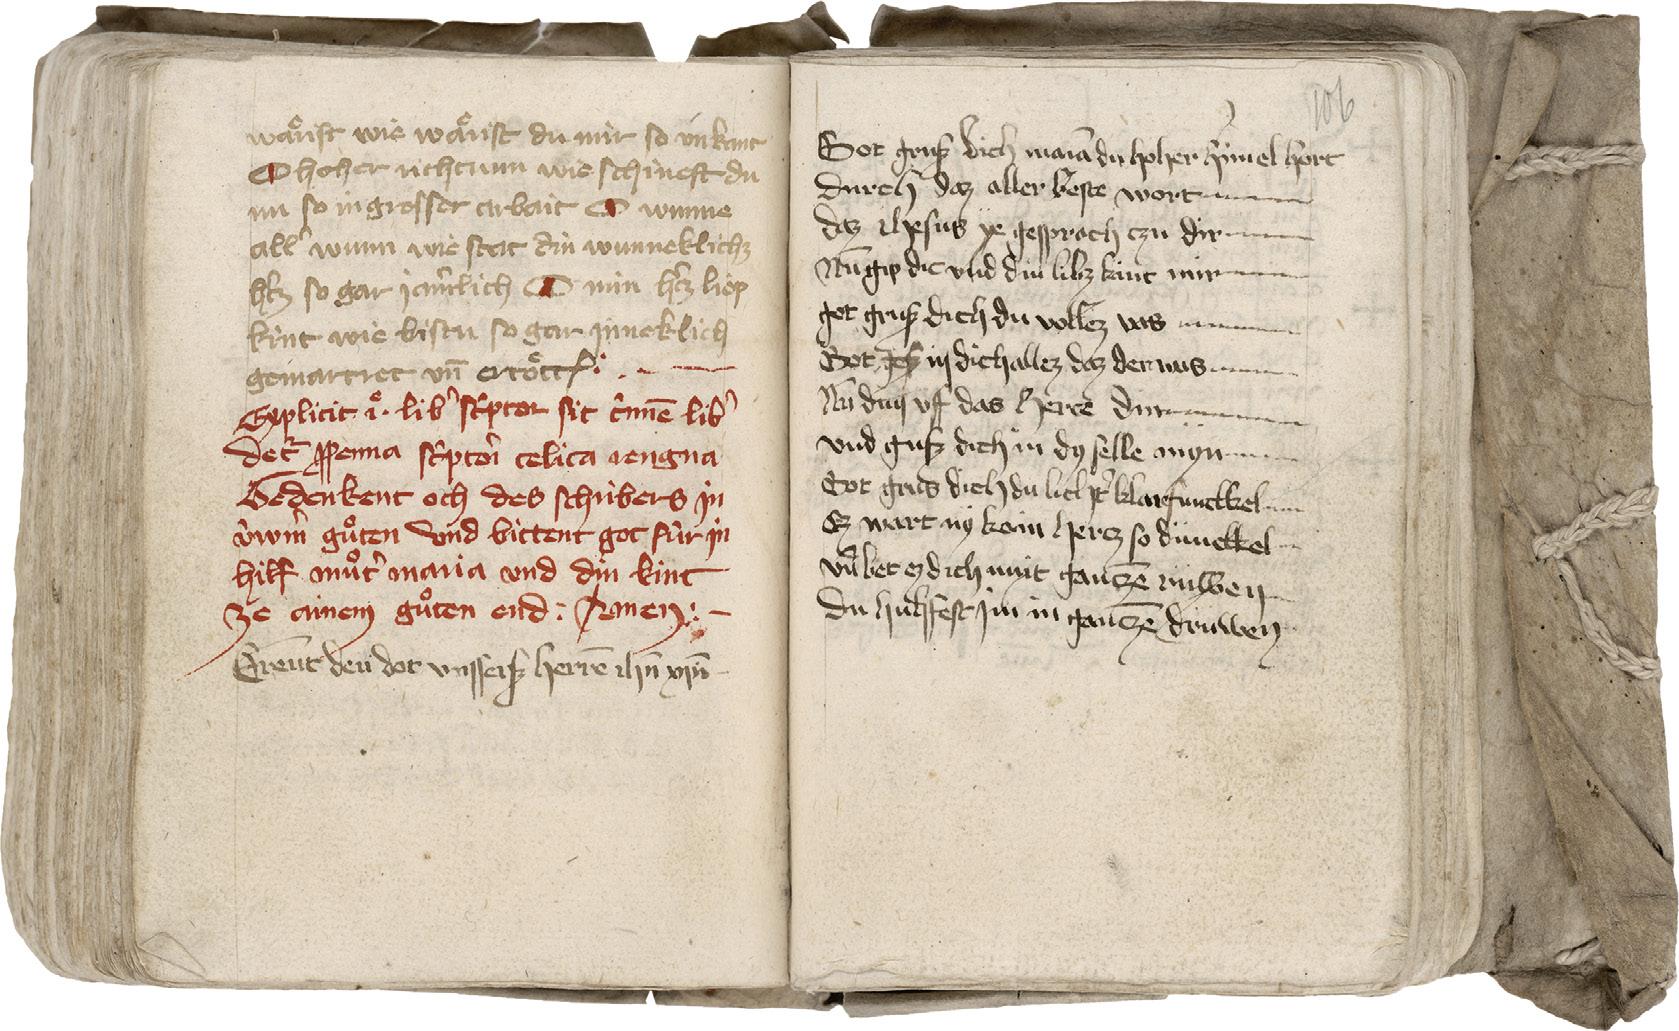 waͤrist wie waͤrist du mir so vnkant
O hoher richtum wie schinest du
nu so in grosser arbait O wunne
all' wunn wie stat din wunneklichz
hꝰtz so gar iam̄lich O min hꝰtz liep
kint wie bistu so gar inneklich
gemartret vn̄ ertoͤtt
Explicit lib' sc'ptor sit c'mīe lib'
det' penna sc'ptori celica rengna
Gedenkent och des schribers in
v̓wm̄ guͦten vnd bittent got fúr in
hilf muͦt' maria vnd din kint
ze ainem guͦten end : Amen :
den dot vnsserß herrē ihū xp̄i
106
Got gruß dich maria du hoher himel hort
durch daz aller beste wort
daz ihesus ye gesprach czu dir
Nū gip dic vnd din libz kint mir
got gruß dich du vollez vas
Got in dich allez daz der was
Nū duy vff das herre dur
vnd gruß dich in dy selle myn
Got grus dich du licht' klarfunckel
Ez wart ny kein hercz so dunckel
vn̄ bet ez dich mit gantzē rúwen
du hulffest im in gantzē druwen